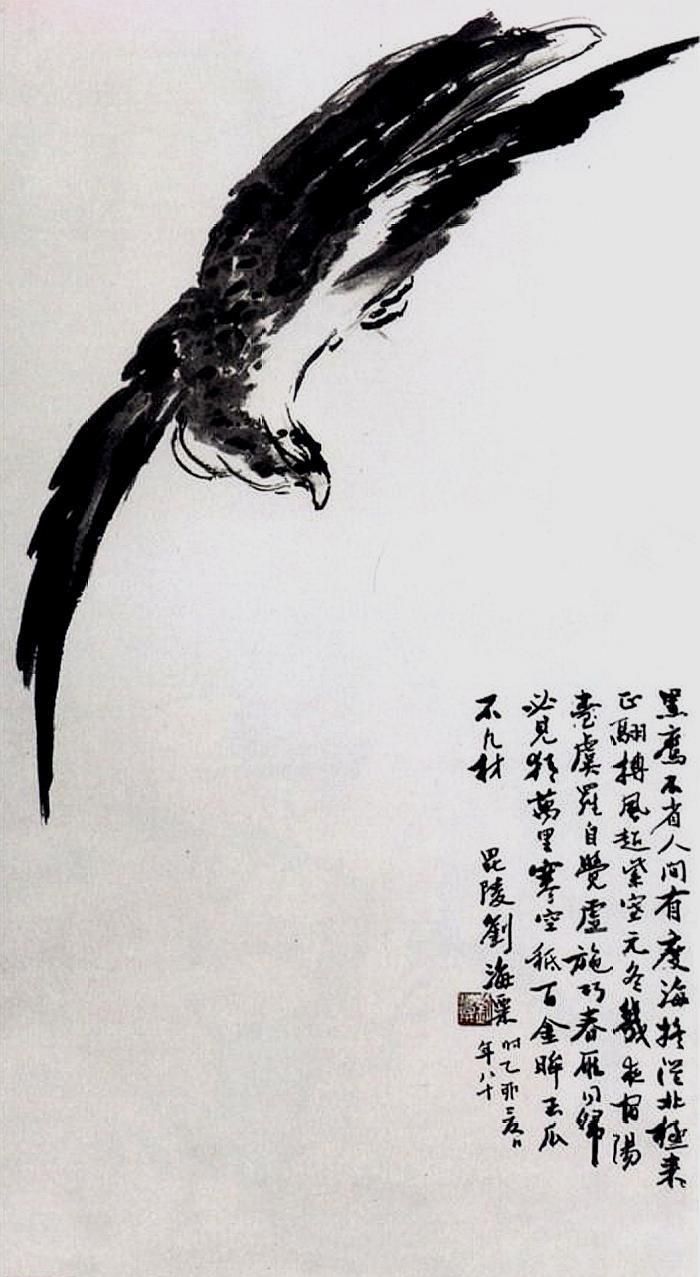 黑鷹不省人間有度海疑從北極來
正翮摶風超紫塞元冬幾夜宿陽
臺虞羅自覺虛施巧春雁同歸
必見猜萬里寒空秖一日金眸玉爪
不凡材 毗陵劉海粟
時乙卯
年八十